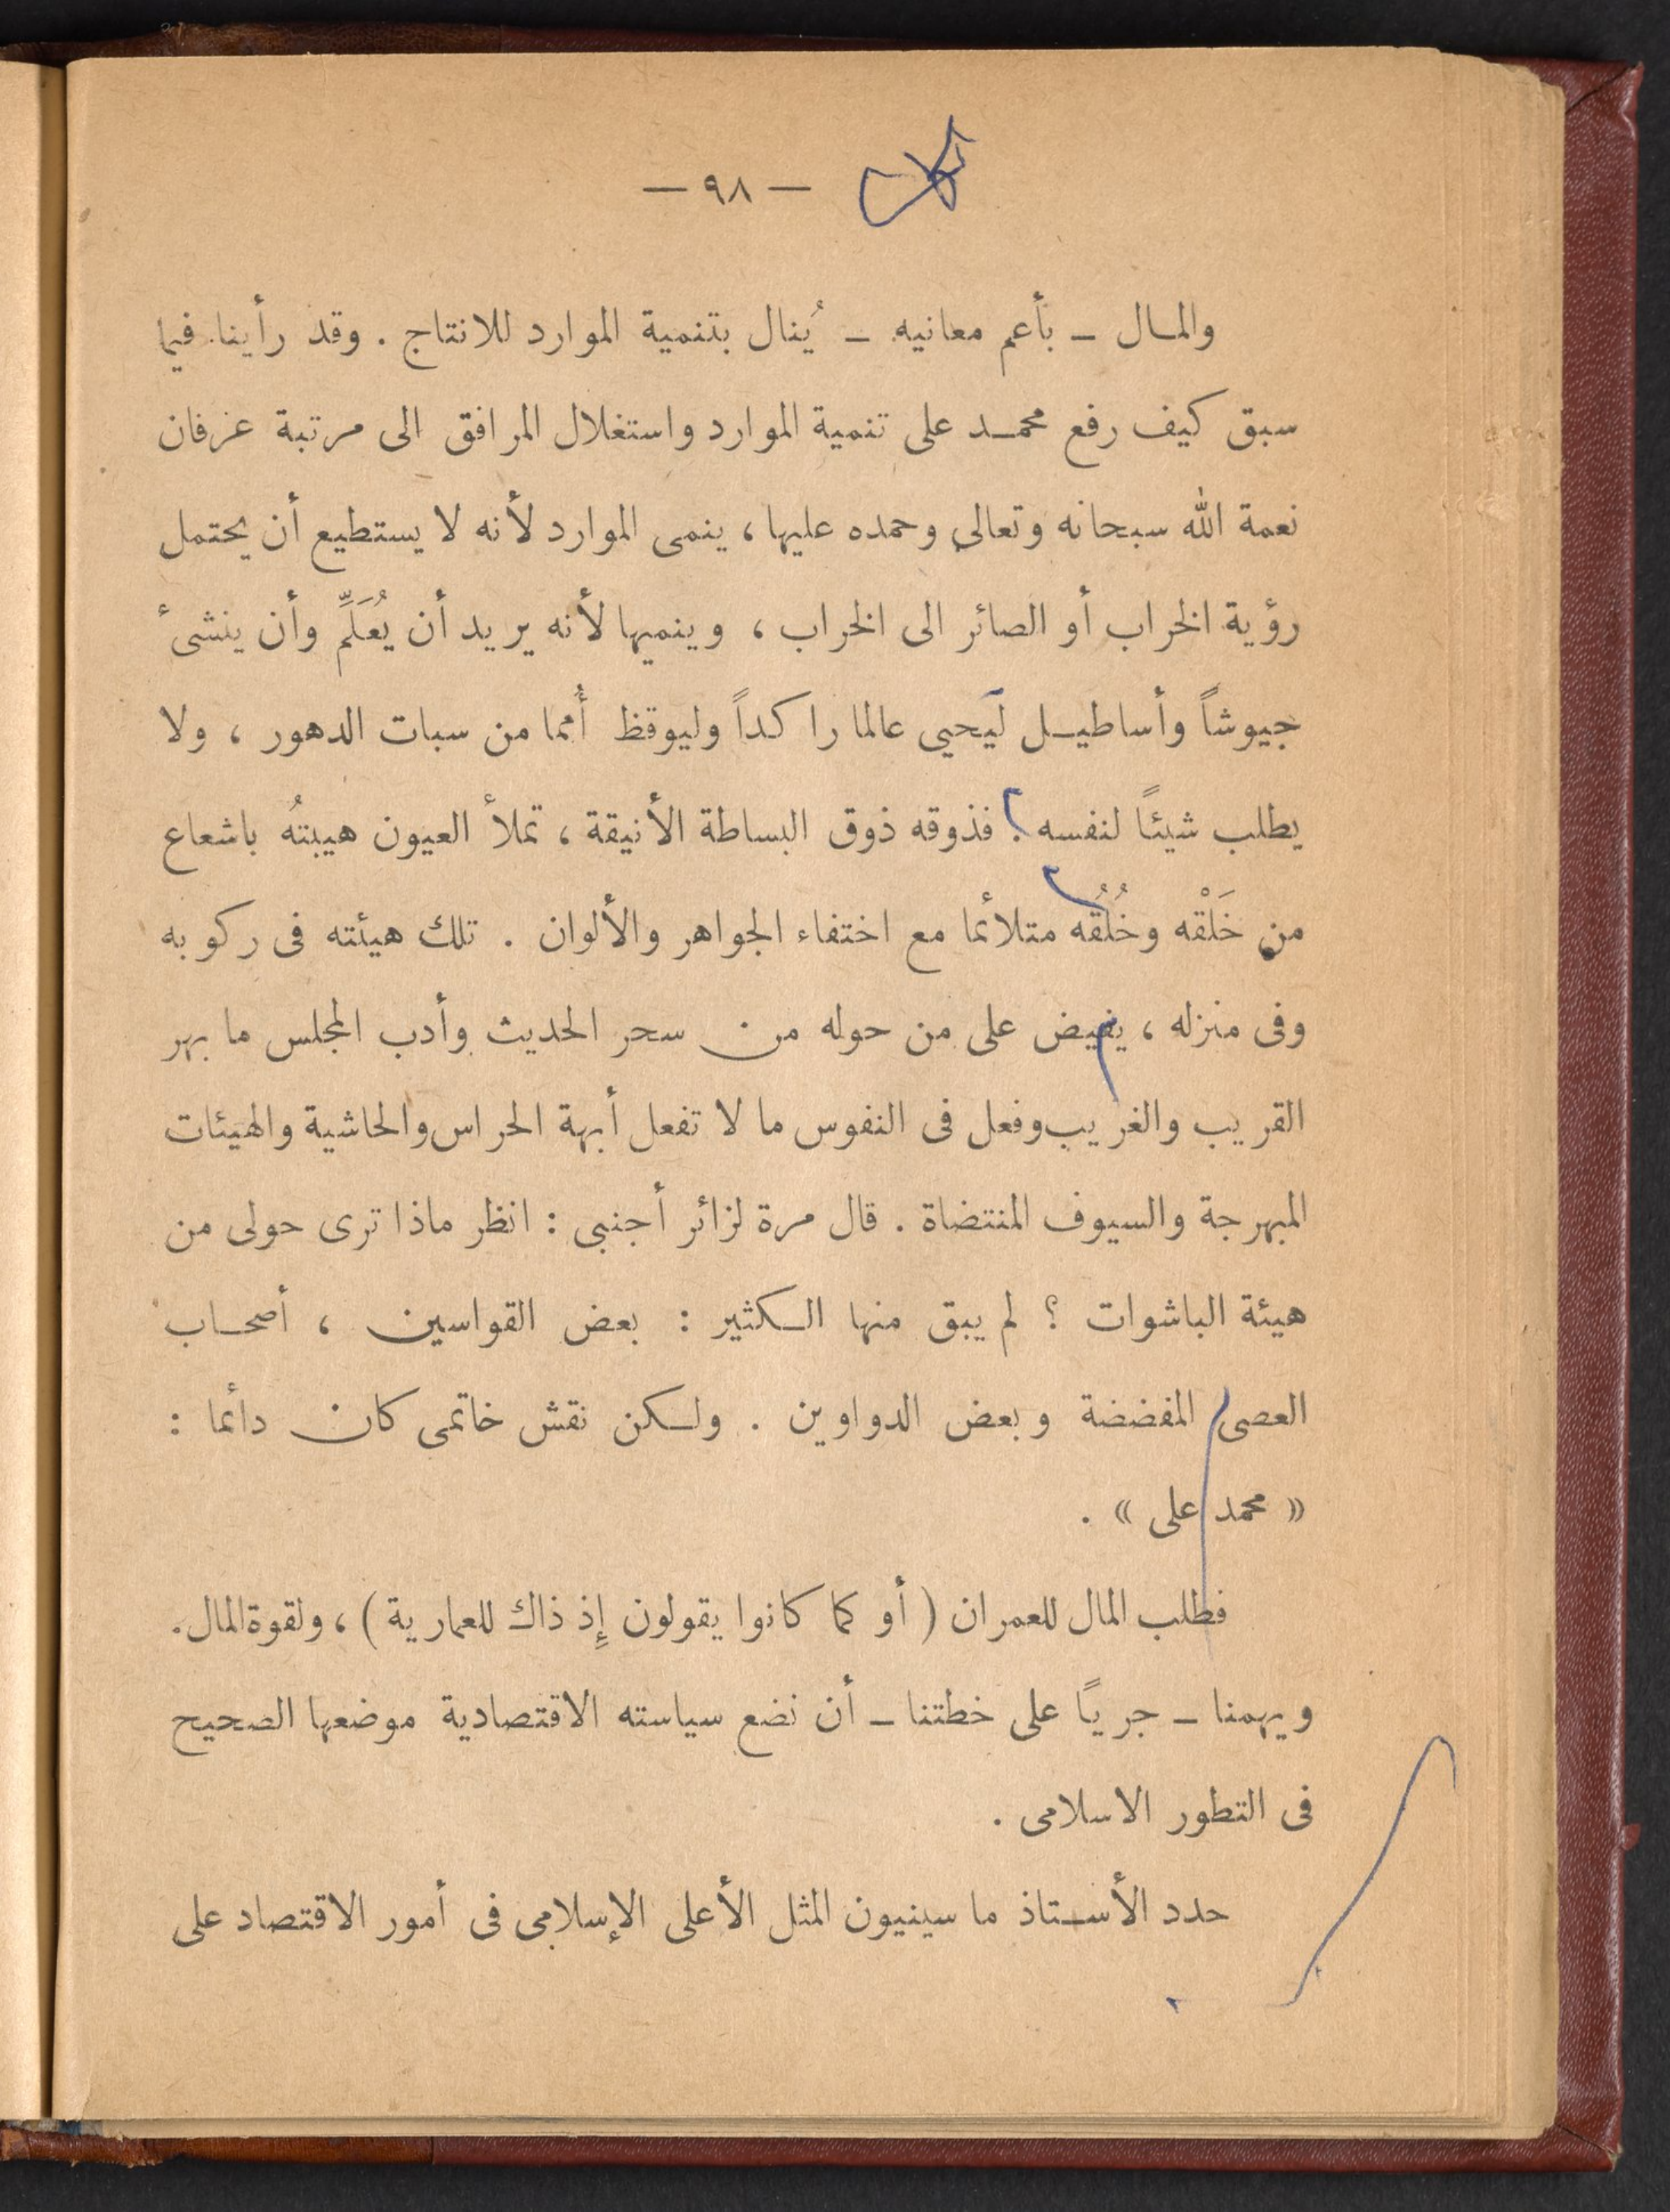 — ٩٨ —
والمـال ــ بأعم معانيه ــ يُنال بتنمية الموارد للانتاج . وقد رأينا فيما
سبق كيف رفع محمـد على تنمية الموارد واستغلال المرافق الى مرتبة عرفان
نعمة الله سبحانه وتعالى وحمده عليها ، ينمى الموارد لأنه لا يستطيع أن يحتمل
رؤية الخراب أو الصائر الى الخراب ، وينميها لأنه يريد أن يُعَلِّم وأن ينشىء
جيوشاً وأساطيـل ليَحيى عالما راكداً وليوقظ أمما من سبات الدهور ، ولا
يطلب شيئاً لنفسه . فذوقه ذوق البساطة الأنيقة ، تملأ العيون هيبتهُ باشعاع
من خَلْقه وخُلُقه متلائما مع اختفاء الجواهر والألوان . تلك هيئته فى ركوبه
وفى منزله ، يفيض على من حوله من سحر الحديث وأدب المجلس ما بهر
القريب والغريب وفعل فى النفوس ما لا تفعل أبهة الحراس والحاشية والهيئات
المبهرجة والسيوف المنتضاة . قال مرة لزائر أجنبى : انظر ماذا ترى حولى من
هيئة الباشوات ؟ لم يبق منها الـكثير : بعض القواسين ، أصحـاب
العصى المفضضة وبعض الدواوين . ولـكن نقش خاتمى كان دائما :
« محمد على » .
فطلب المال للعمران ( أو كما كانوا يقولون إِذ ذاك للعمارية ) ، ولقوة المال .
ويهمنا ــ جرياً على خطتنا ــ أن نضع سياسته الاقتصادية موضعها الصحيح
فى التطور الاسلامى .
حدد الأسـتاذ ما سينيون المثل الأعلى الإسلامى فى أمور الاقتصاد على